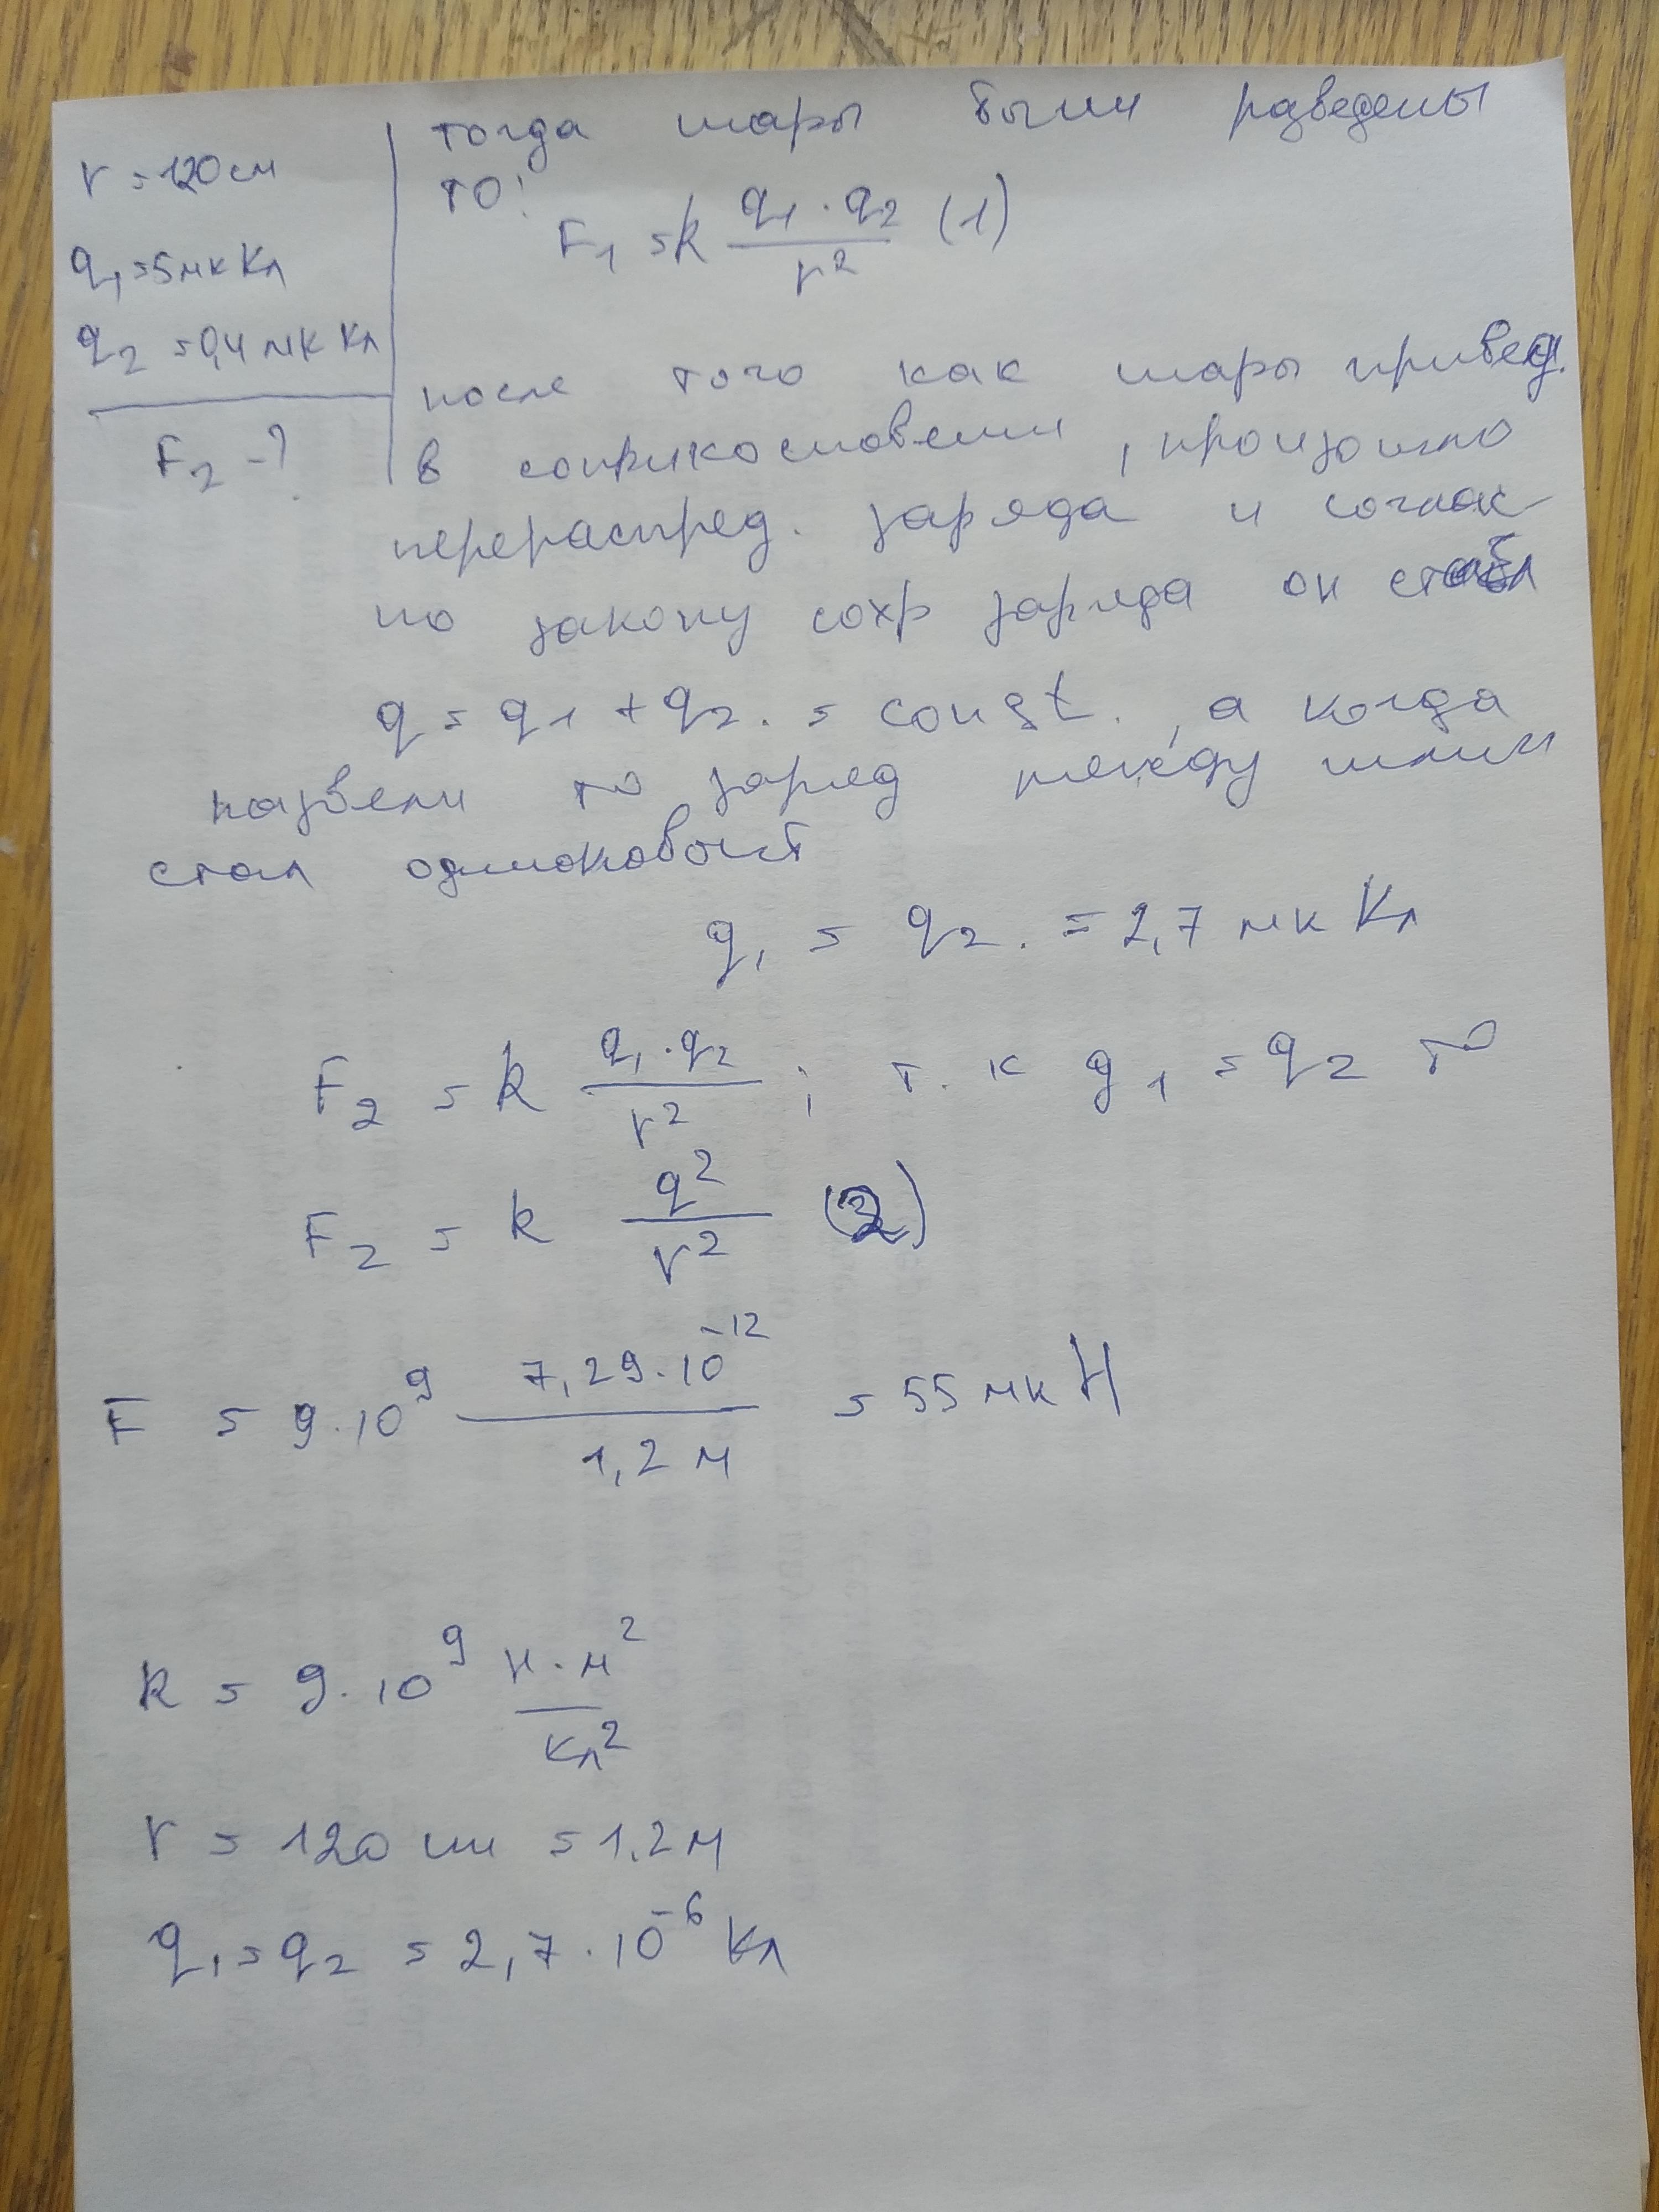 r = 120 см
q₁ = 5 мк Кл
q₂ = 0,4 мк Кл
F₂ - ?
тогда шары были разведены
то:
F₁ = k q₁ · q₂ / r² (1)
после того как шары привед.
в соприкосновении, произошло
перераспред. заряда и соглас
по закону сохр заряда он стал
q = q₁ + q₂. = const., а когда
развели то заряд между ними
стал одинаковый
q₁ = q₂. = 2,7 мк Кл
F₂ = k q₁ · q₂ / r² ; т. к q₁ = q₂ то
F₂ = k q² / r² (2)
F = 9 · 10⁹ 7,29 · 10⁻¹² / 1,2 м = 55 мк Н
k = 9 · 10⁹ Н · м² / Кл²
r = 120 см = 1,2 м
q₁ = q₂ = 2,7 · 10⁻⁶ Кл